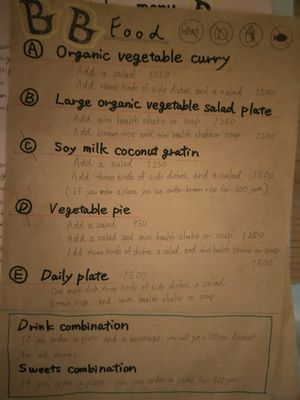 BB Food
MEAT
A Organic vegetable curry
Add a salad 1250
Add three kinds of side dishes, and a salad 1500
B Large organic vegetable salad plate
Add mini health shake or soup 1250
Add brown rice and mini health shake or soup 1500
C Soy milk coconut gratin
Add a salad 1250
Add three kinds of side dishes, and a salad 1500
(If you order a plate, you can order brown rice for 300 yen)
D Vegetable pie
Add a salad 950
Add a salad and mini health shake or soup 1250
Add three kinds of dishes, a salad, and mini health shake or soup
1500
E Daily plate 1500
One main dish, three kinds of side dishes, a salad,
brown rice, and mini health shake or soup
Drink combination
If you order a plate and a beverage, you will get a 100 yen discount
for all drinks
Sweets combination
If you order a plate, you can order a cake for 400 yen